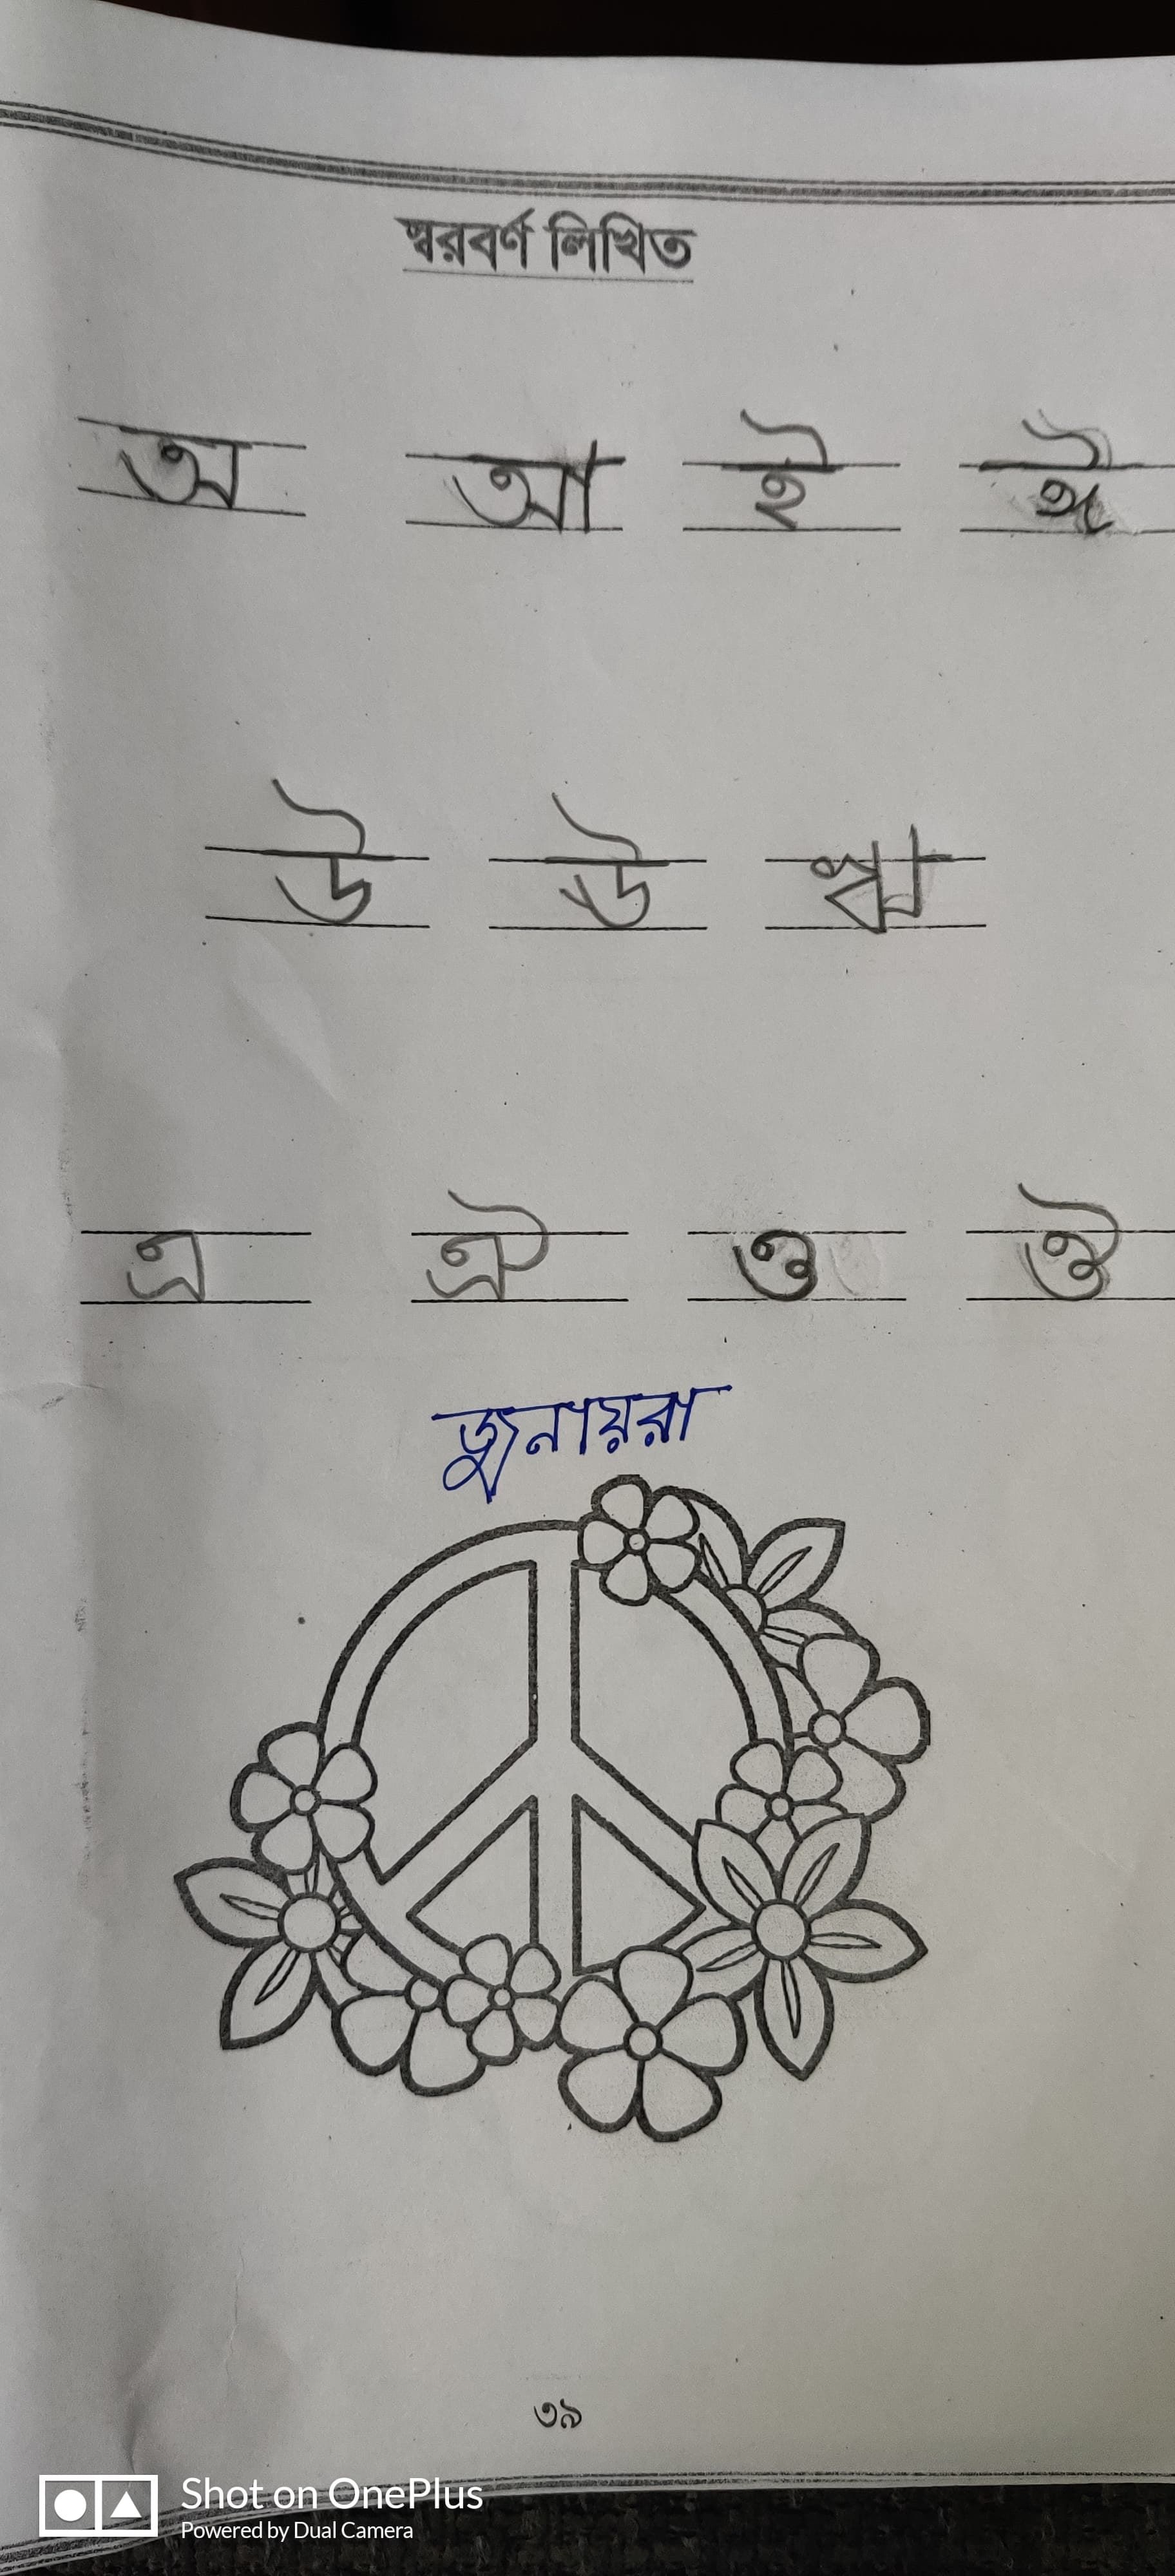 স্বরবর্ণ লিখিত
অ আ ই ঈ
উ ঊ ঋ
এ ঐ ও ঔ
জুনায়রা
৩৯
Shot on OnePlus
Powered by Dual Camera